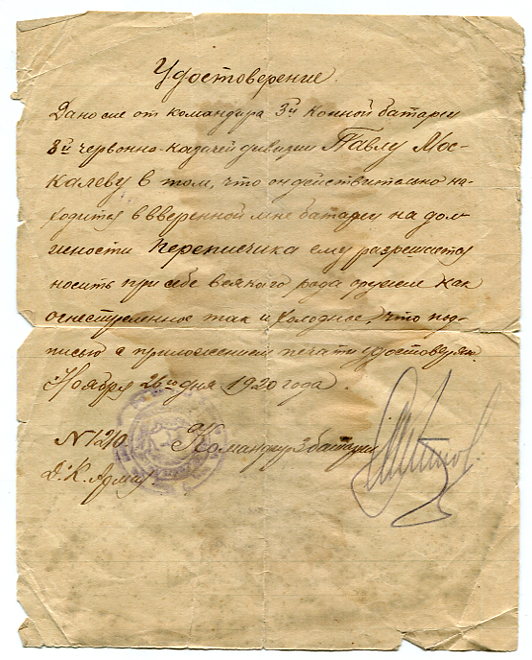 Удостоверение.
Дано сие от командира 3й Конной батареи
8й червонно-казачей дивизии Павлу Мос-
калеву в том, что он действительно на-
ходится в вверенной мне батареи на дол-
жности Переписчика ему разрешается
носить при себе всякого рода оружие как
огнестрельное так и холодное, что под-
писью с приложением печати удостоверяю.
Ноября 26го дня 1920 года.
N 1210 Командир 3 батареи
Д. К. Армия